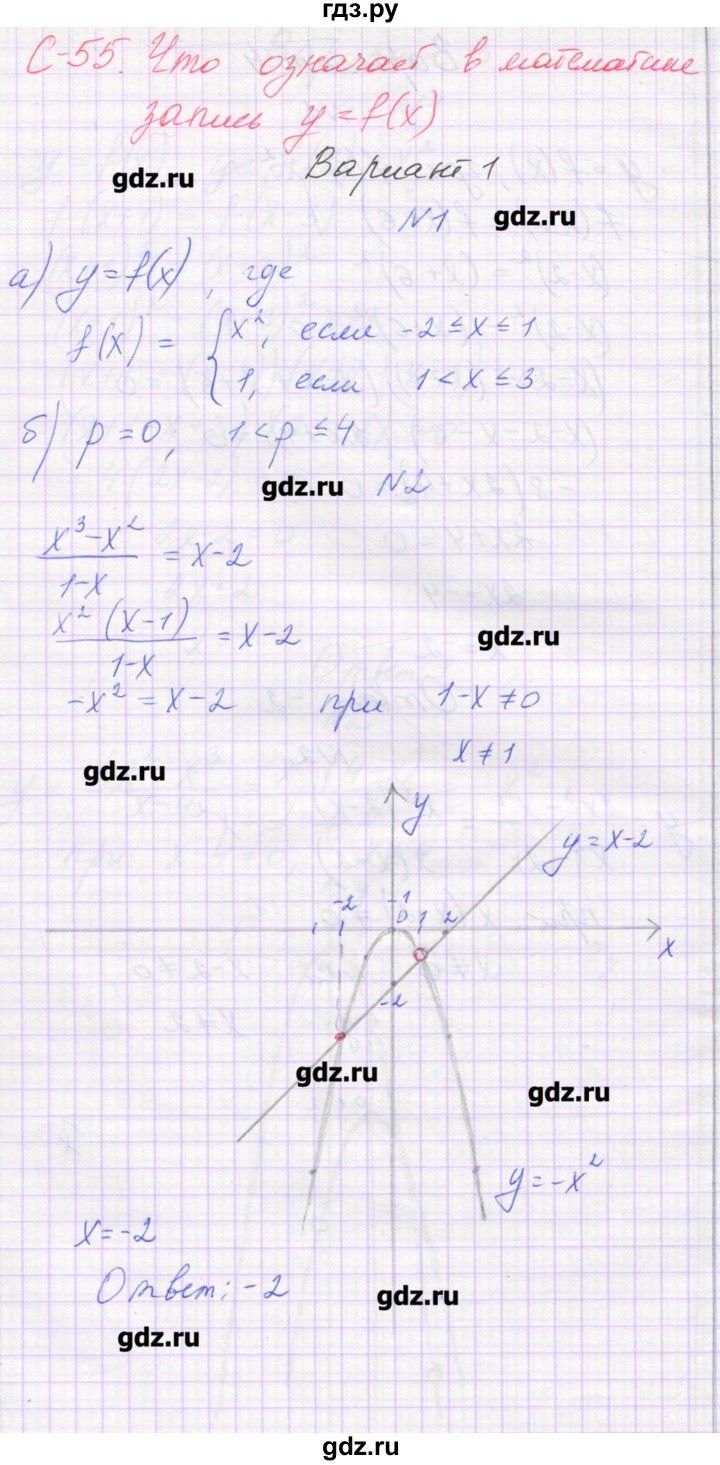 гдз.ру
С-55. Что означает в математике
запись y = f(x)
Вариант 1
gdz.ru
gdz.ru
№1
а) y = f(x), где
f(x) = { x², если -2 ≤ x ≤ 1
1, если 1 < x ≤ 3
б) p = 0, 1 < p ≤ 4
gdz.ru
№2
(x³ - x²)/(1-x) = x-2
(x² (x-1))/(1-x) = x-2
gdz.ru
-x² = x-2 при 1-x ≠ 0
x ≠ 1
gdz.ru
y
y = x-2
-2 -1 0 1 2
x
-2
gdz.ru
gdz.ru
y = -x²
x = -2
Ответ: -2
gdz.ru
gdz.ru
gdz.ru